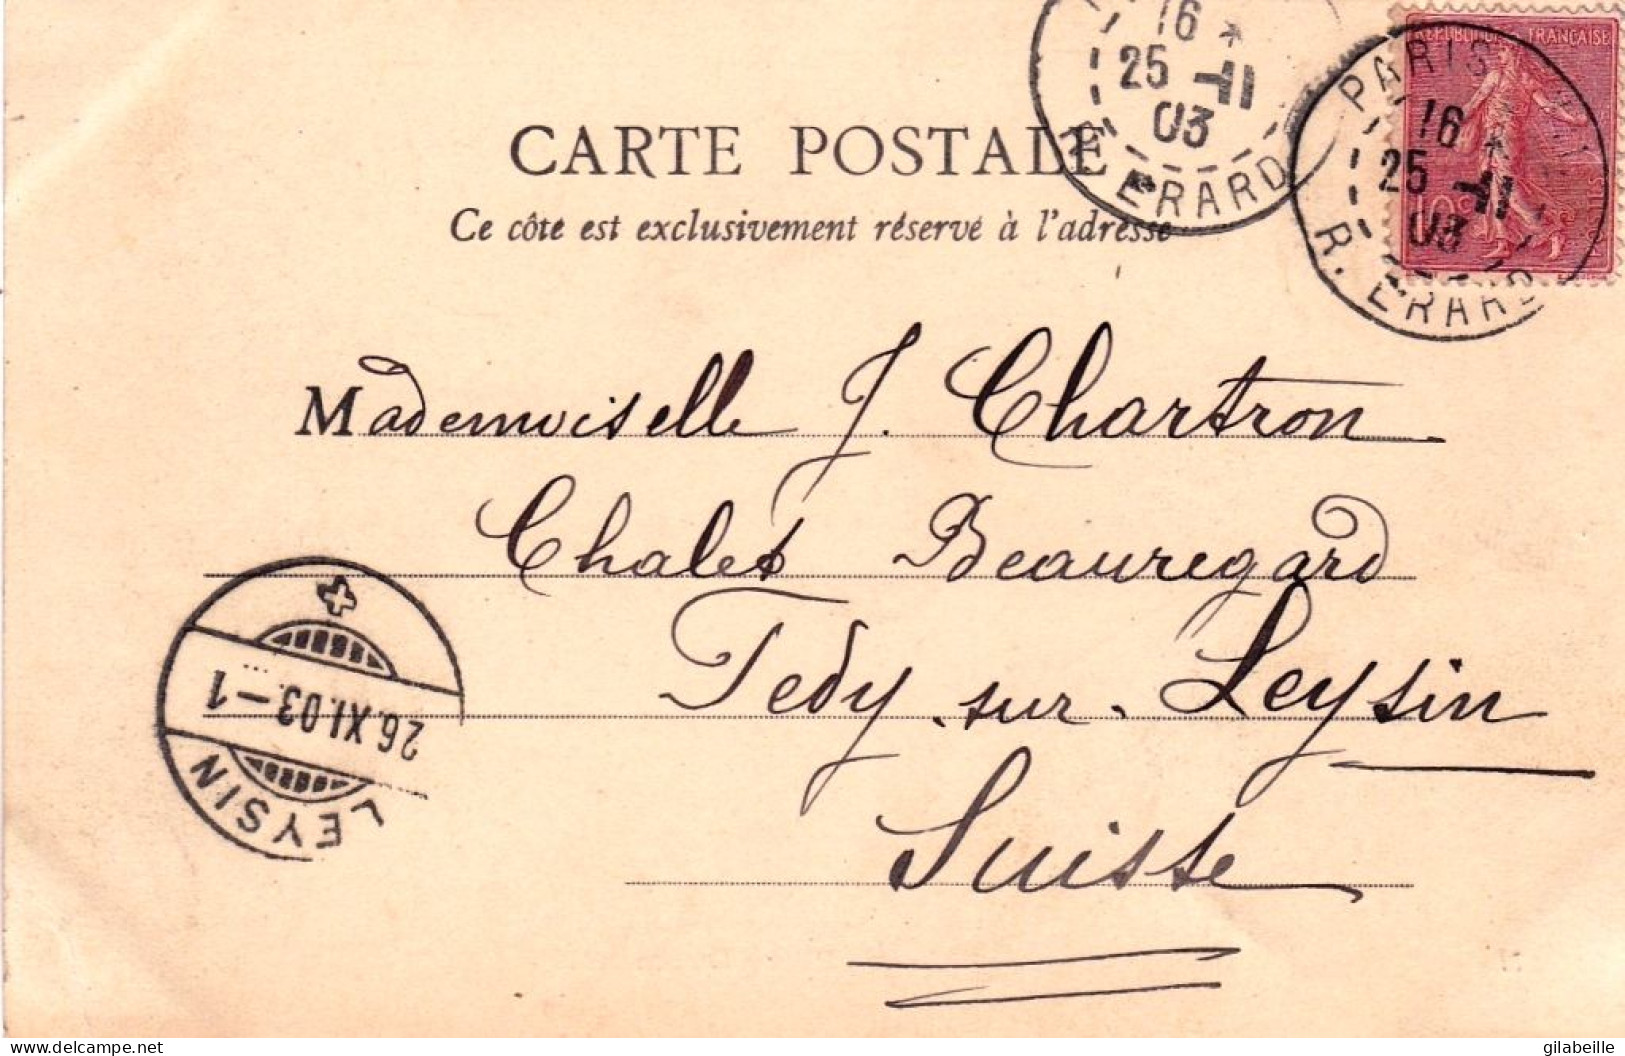 16 *
25 - 11
03
R. ERARD
REPUBLIQUE FRANÇAISE
PARIS
16 *
25 - 11
03
R. ERARD
10c
CARTE POSTALE
Ce côté est exclusivement réservé à l'adresse
Mademoiselle J. Chartron.
Chalet Beauregard
Fedy-sur-Leysin
Suisse
26.XI.03-1
LEYSIN
delcampe.net
gilabeille